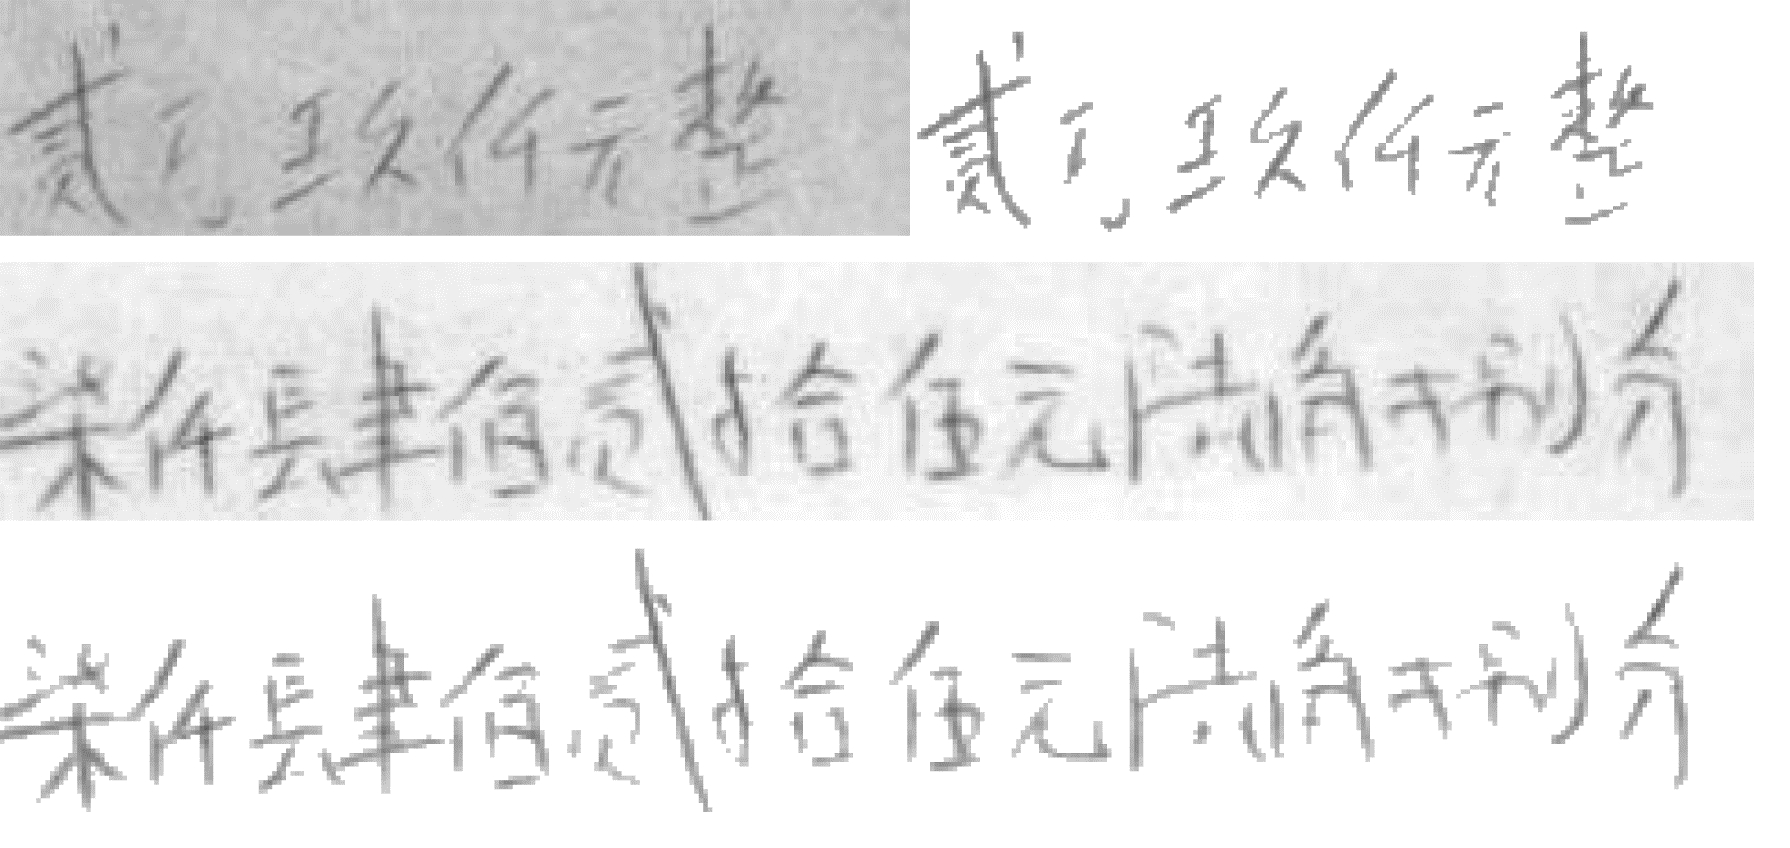 贰万玖仟元整 贰万玖仟元整
柒仟肆佰贰拾伍元陆角捌分
柒仟肆佰贰拾伍元陆角捌分